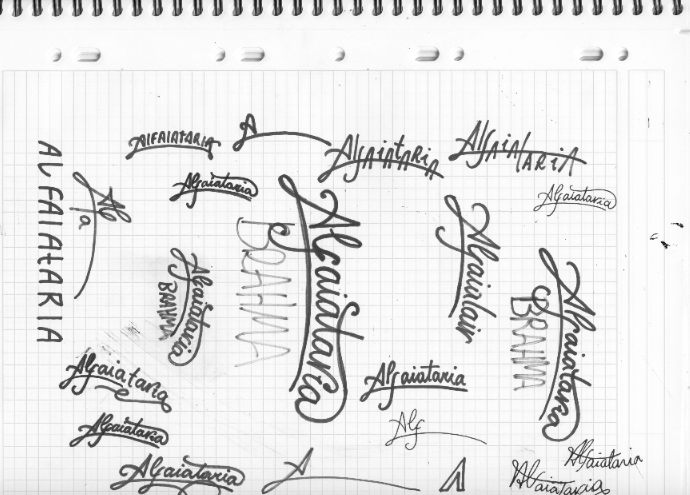 ALFAIATARIA
A
AlfaiatARiA
AlfAiAtARiA
Alfaiataria
Alfaiataria
Alfa
ALFAIATARIA
Alfaiataria
BRAHMA
Alfaiatair
Alfaiataria
BRAHMA
Alfaiataria
BRAHMA
Alfaiataria
Alfaiataria
Alf
Alfaiataria
Alfaiataria
A
A
Alfaiataria
Alfaiataria